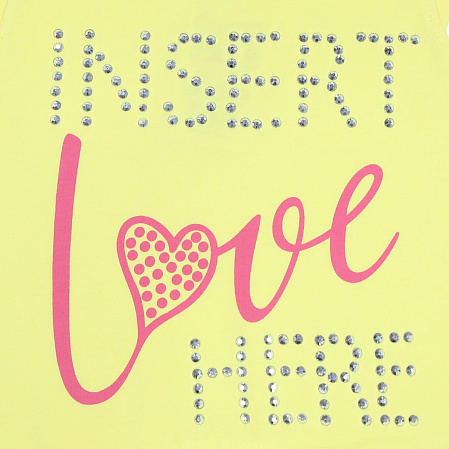 INSERT
Love
HERE